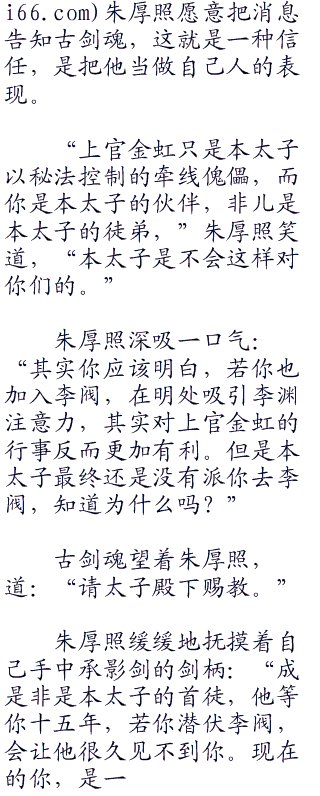 i66.com)朱厚照愿意把消息
告知古剑魂，这就是一种信
任，是把他当做自己人的表
现。
“上官金虹只是本太子
以秘法控制的牵线傀儡，而
你是本太子的伙伴，非儿是
本太子的徒弟，”朱厚照笑
道，“本太子是不会这样对
你们的。”
朱厚照深吸一口气：
“其实你应该明白，若你也
加入李阀，在明处吸引李渊
注意力，其实对上官金虹的
行事反而更加有利。但是本
太子最终还是没有派你去李
阀，知道为什么吗？”
古剑魂望着朱厚照，
道：“请太子殿下赐教。”
朱厚照缓缓地抚摸着自
己手中承影剑的剑柄：“成
是非是本太子的首徒，他等
你十五年，若你潜伏李阀，
会让他很久见不到你。现在
的你，是一